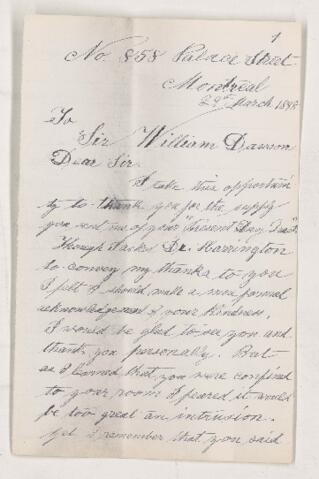 1
No. 858 Palace Street
Montreal
29th March 1898
To
Sir William Dawson
Dear Sir.
I take this opportuni
ty to thank you for the supply
you sent me of your "Present Day Tracts"
Though I asked Dr. Harrington
to convey my thanks to you
I felt I should make a more formal
acknowledgement of your kindness.
I would be glad to see you and
thank you personally. But
as I learned that you were confined
to your room I feared it would
be too great an intrusion.
Yet I remember that you said